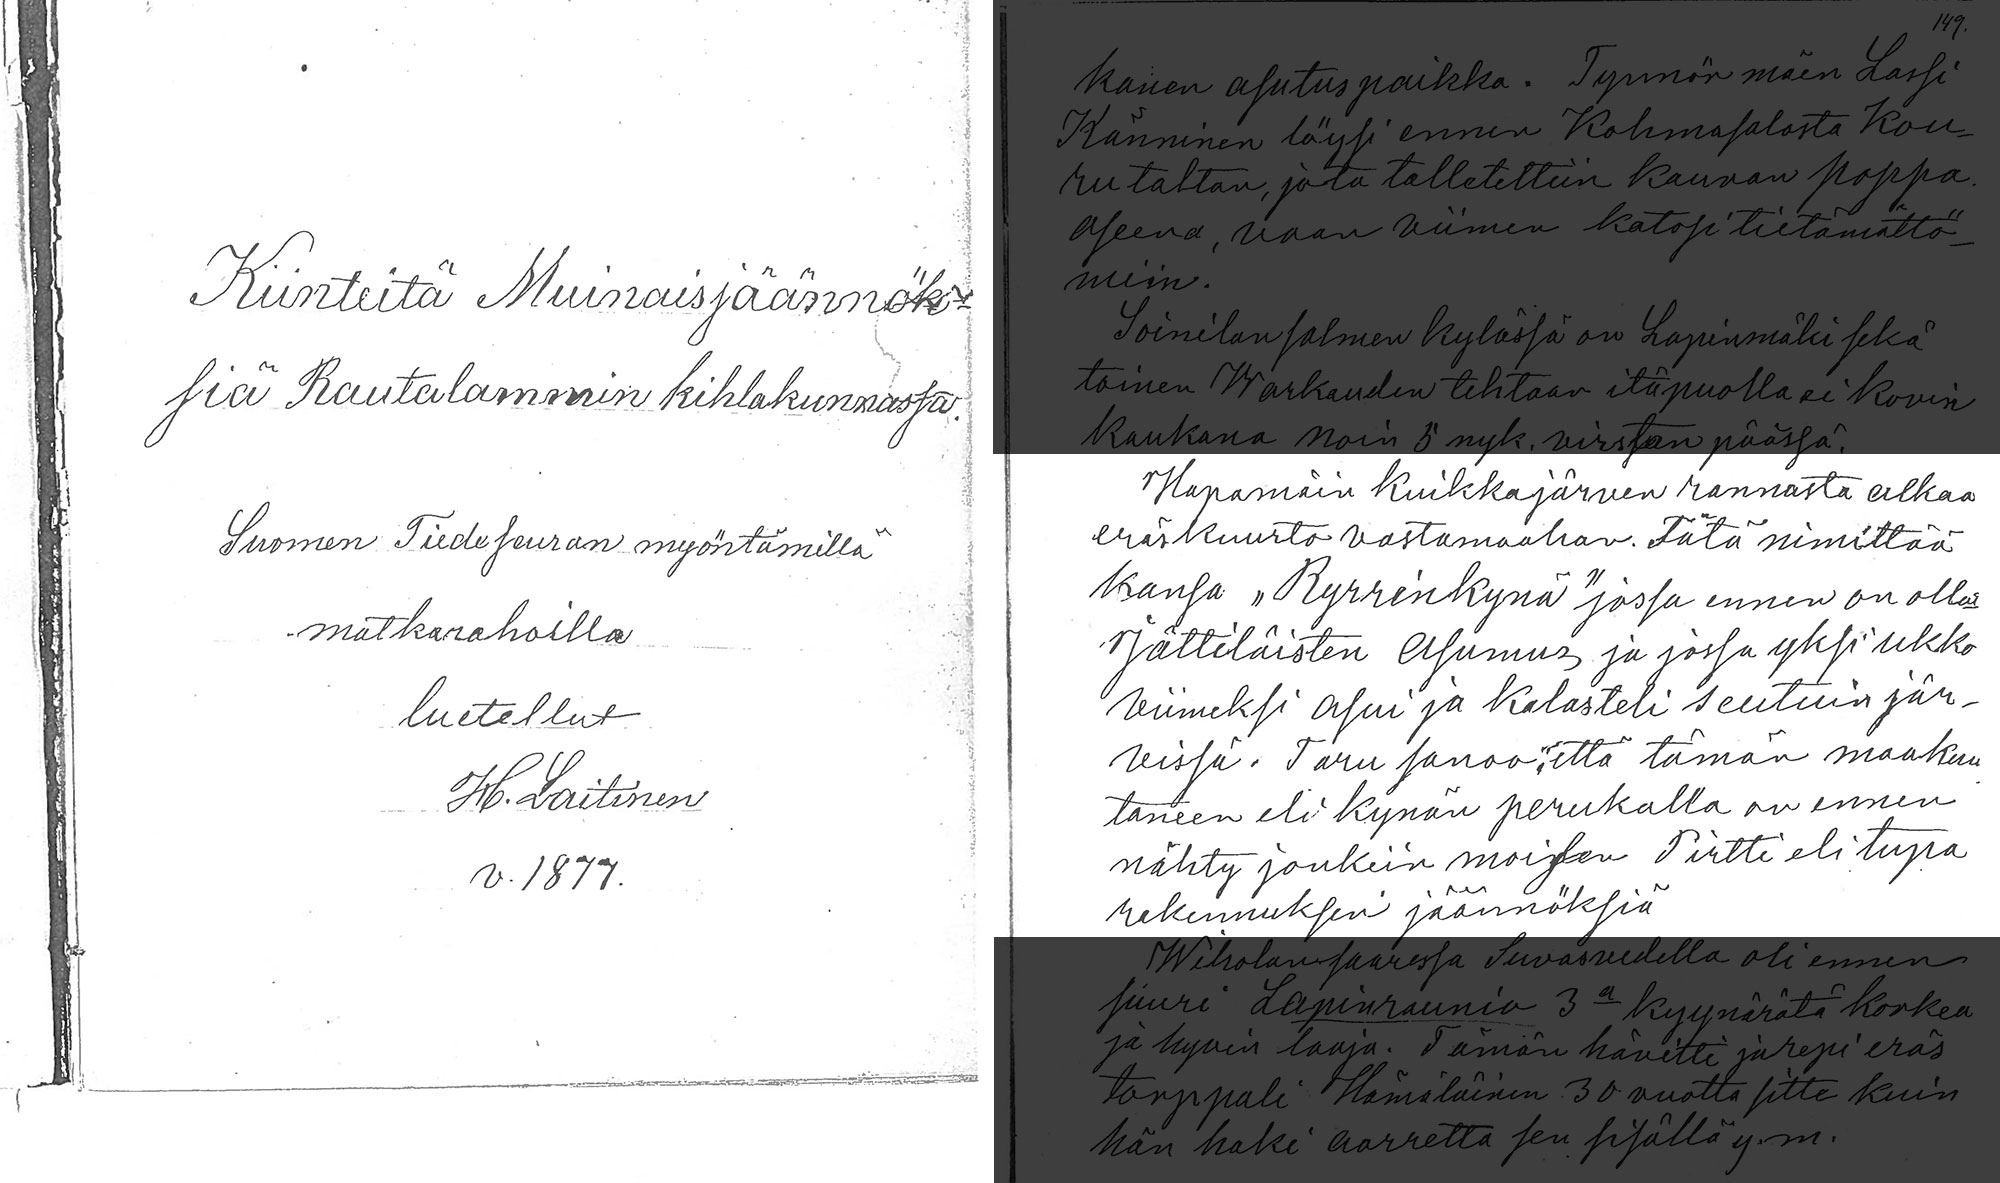 Kiinteitä Muinaisjäännök-
siä Rautalammin kihlakunnassa.
Suomen Tiedeseuran myöntämillä
matkarahoilla
luetellut
H. Laitinen
v. 1877.
149.
kaisen asutuspaikka. Tynnör mäen Lassi
Känninen löysi ennen Kohmasalosta Kou-
rutaltan, jota talletettiin kauvan poppa
aseena, vaan viimen katosi tietämättö-
miin.
Soinilansalmen kylässä on Lapinmäki sekä
toinen Warkauden tehtaan itäpuolla ei kovin
kaukana noin 5 nyk. virstan päässä.
Hapamäin Kuikkajärven rannasta alkaa
eräs kuurto vastamaahan. Tätä nimittää
kansa „Ryrrinkynä” jossa ennen on ollut
Jättiläisten Asumus ja jossa yksi ukko
viimeksi asui ja kalasteli seutuin jär-
vissä. Taru sanoo, että tämän maakuu
taneen eli kynän perukalla on ennen
nähty jonkiin moisen Pirtti eli tupa
rakennuksen jäännöksiä
Wiholansaaressa Suvasvedellä oli ennen
suuri Lapinraunio 3a kyynärätä korkea
ja hyvin laaja. Tämän hävitti ja repi eräs
torppali Hämäläinen 30 vuotta sitte kuin
hän haki aarretta sen sisällä y.m.